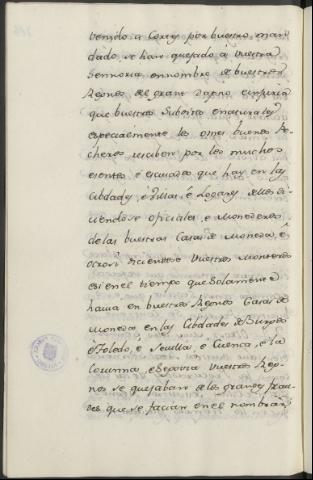 venido a Cortes por buestro man
dado, se han quejado á Vuestra
Sennoria en nombre de buestros
Regnos del grant dapno einjuria
que buestros Subditos enaturales
especialmente los omes buenos Pe
cheros resciben por los muchos
esentos é escusados que hay en las
Cibdades, é Villas é Logares de
ciendose oficiales, é Monederos
de las buestras Casas de Moneda, é
otrosi diciendo Vuestros Monederos
é si en el tiempo que Solamente
havia en buestros Regnos Casas de
Moneda en las Cibdades de Burgos
é Toledo, é Sevilla é Cuenca, é la
Corunna, é Segovia Vuestros Reg-
nos se quejaban de los grandes frau
des que se facian en el nombrar